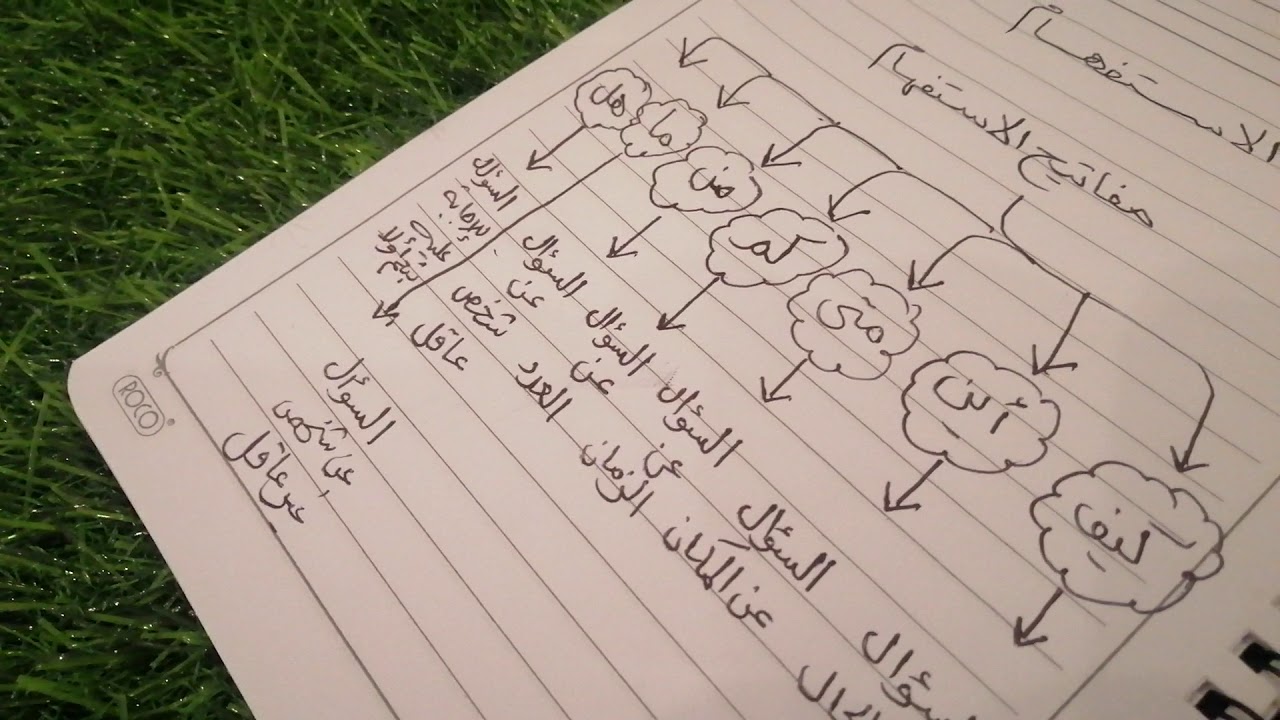 الاستفهام
مفاتيح الاستفهام
كيف
أين
متى
كم
من
ما
هل
السؤال
السؤال
عن المكان
السؤال
عن
الزمان
السؤال
عن
العدد
السؤال
عن
شخص
عاقل
السؤال
عن شخص
غير عاقل
السؤال
الإجابة
عليه
بنعم أو لا
ROCO